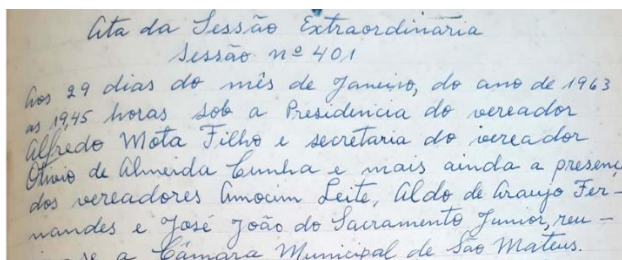 Ata da Sessão Extraordinária
Sessão nº 401
Aos 29 dias do mês de Janeiro, do ano de 1963
as 19,45 horas sob a Presidencia do vereador
Alfredo Mota Filho e secretaria do vereador
Otivio de Almeida Cunha e mais ainda a presenç
dos vereadores Amocim Leite, Aldo de Araujo Fer-
nandes e José João do Sacramento Junior, reu-
se a Câmara Municipal de São Mateus.